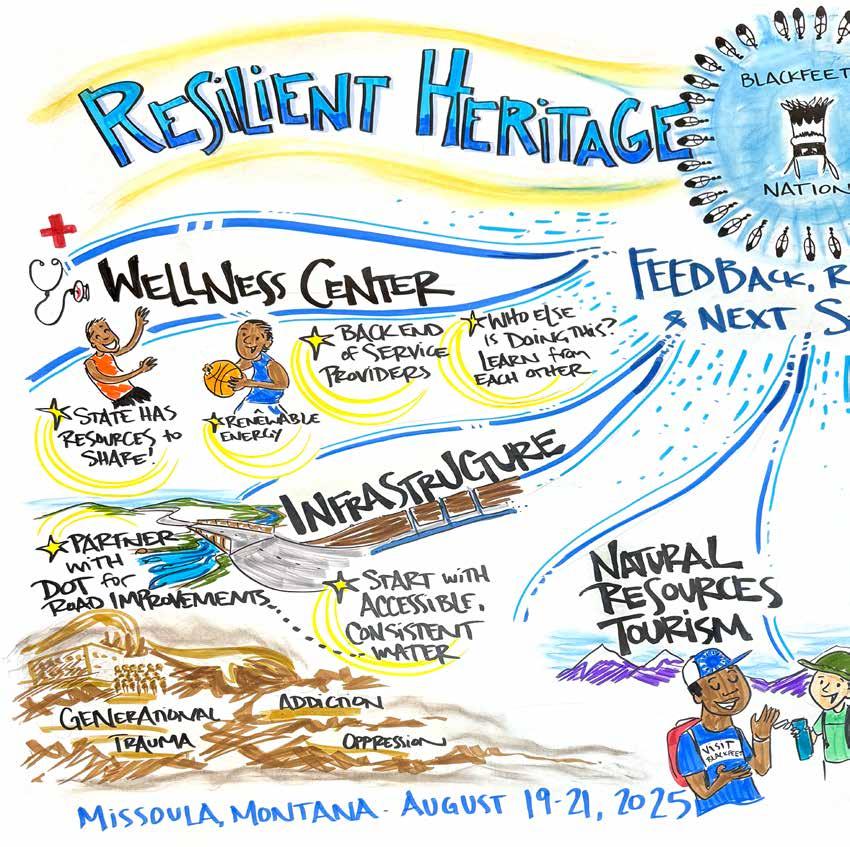 RESILIENT HERITAGE
BLACKFEET
NATION
FEEDBACK, R
& NEXT S
WELLNESS CENTER
STATE HAS
RESOURCES to
SHARE!
RENEWABLE
ENERGY
BACK END
of SERVICE
PROVIDERS
WHO ELSE
is DOING THIS?
LEARN from
EACH OTHER
INFRASTRUCTURE
PARTNER
with
DOT for
ROAD IMPROVEMENTS
START with
ACCESSIBLE,
CONSISTENT
WATER
NATURAL
RESOURCES
TOURISM
VISIT
BLACKFEET
GENERATIONAL
TRAUMA
ADDICTION
OPPRESSION
MISSOULA, MONTANA - AUGUST 19-21, 2025